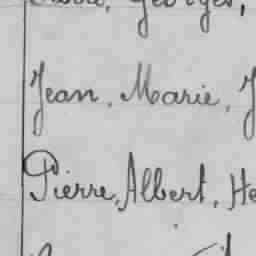 Georges,
Jean, Marie, J
Pierre, Albert, He